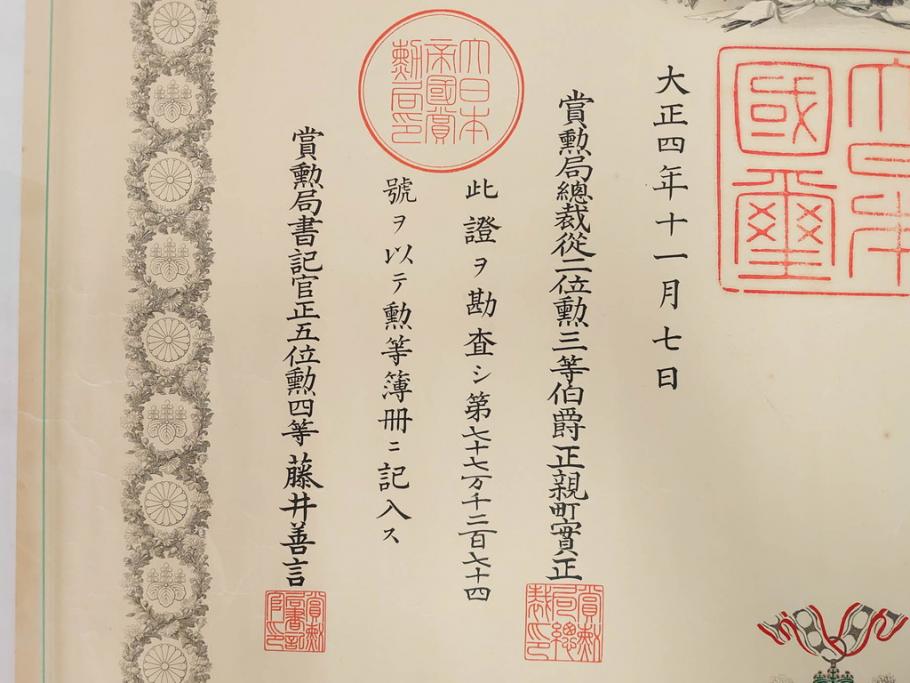 大日本
國璽
大正四年十一月七日
賞勲局總裁從二位勲三等伯爵正親町實正
賞勲
局總
裁印
大日本
帝國賞
勲局印
此證ヲ勘査シ第七十七万千二百七十四
號ヲ以テ勲等簿冊ニ記入ス
賞勲局書記官正五位勲四等藤井善言
賞勲
局書記
官印